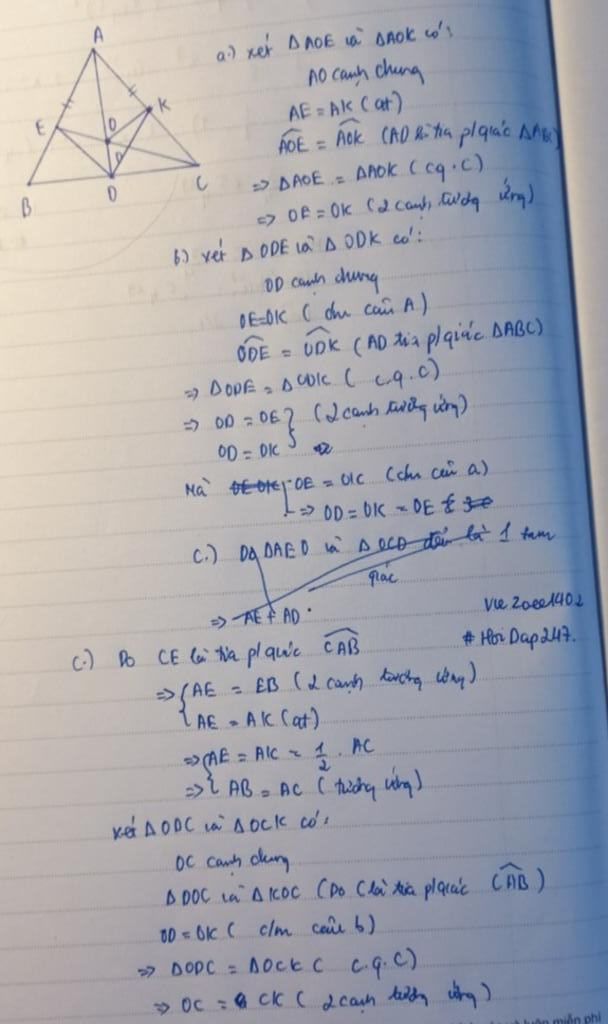 A
E
K
O
B
D
C
a.) xét ΔAOE và ΔAOK có:
AO cạnh chung
AE = AK (gt)
AOE = AOK (AD là tia p/giác ΔABC)
=> ΔAOE = ΔAOK (c.g.c)
=> OE = OK (2 cạnh tương ứng)
b.) xét ΔODE và ΔODK có:
OD cạnh chung
OE=OK ( c/m câu A)
ODE = ODK (AD tia p/giác ΔABC)
=> ΔODE = ΔODK ( c.g.c)
=> OD = OE } (2 cạnh tương ứng)
OD = OK
Mà OE = OK (c/m câu a)
=> OD = OK = OE
c.) ΔAEO và ΔOCD đều là 1 tam
giác
=> AE ≠ AD.
Vie20001402
#HoiDap247.
c.) Do CE là tia p/giác CAB
=> { AE = EB (2 cạnh tương ứng)
AE = AK (gt)
=> { AE = AK = 1/2 . AC
=> AB = AC ( tương ứng)
xét ΔODC và ΔOCK có:
OC cạnh chung
ΔDOC và ΔKOC (Do C là tia p/giác CAB)
OD = OK ( c/m câu b)
=> ΔODC = ΔOCK ( c.g.c)
=> OC = CK ( 2 cạnh tương ứng)
miễn phí